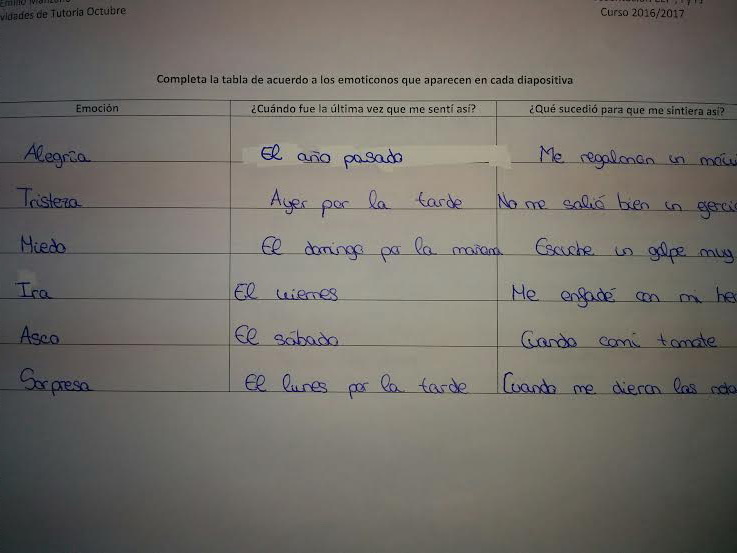 Emilio
vidades de Tutoria Octubre
Curso 2016/2017
Completa la tabla de acuerdo a los emoticonos que aparecen en cada diapositiva
Emoción ¿Cuándo fue la última vez que me sentí así? ¿Qué sucedió para que me sintiera así?
Alegría El año pasado Me regalaron un
Tristeza Ayer por la tarde No me salió bien un
Miedo El domingo por la mañana Escuche un golpe muy
Ira El viernes Me enfadé con mi
Asco El sábado Cuando comí tomate
Sorpresa El lunes por la tarde Cuando me dieron las